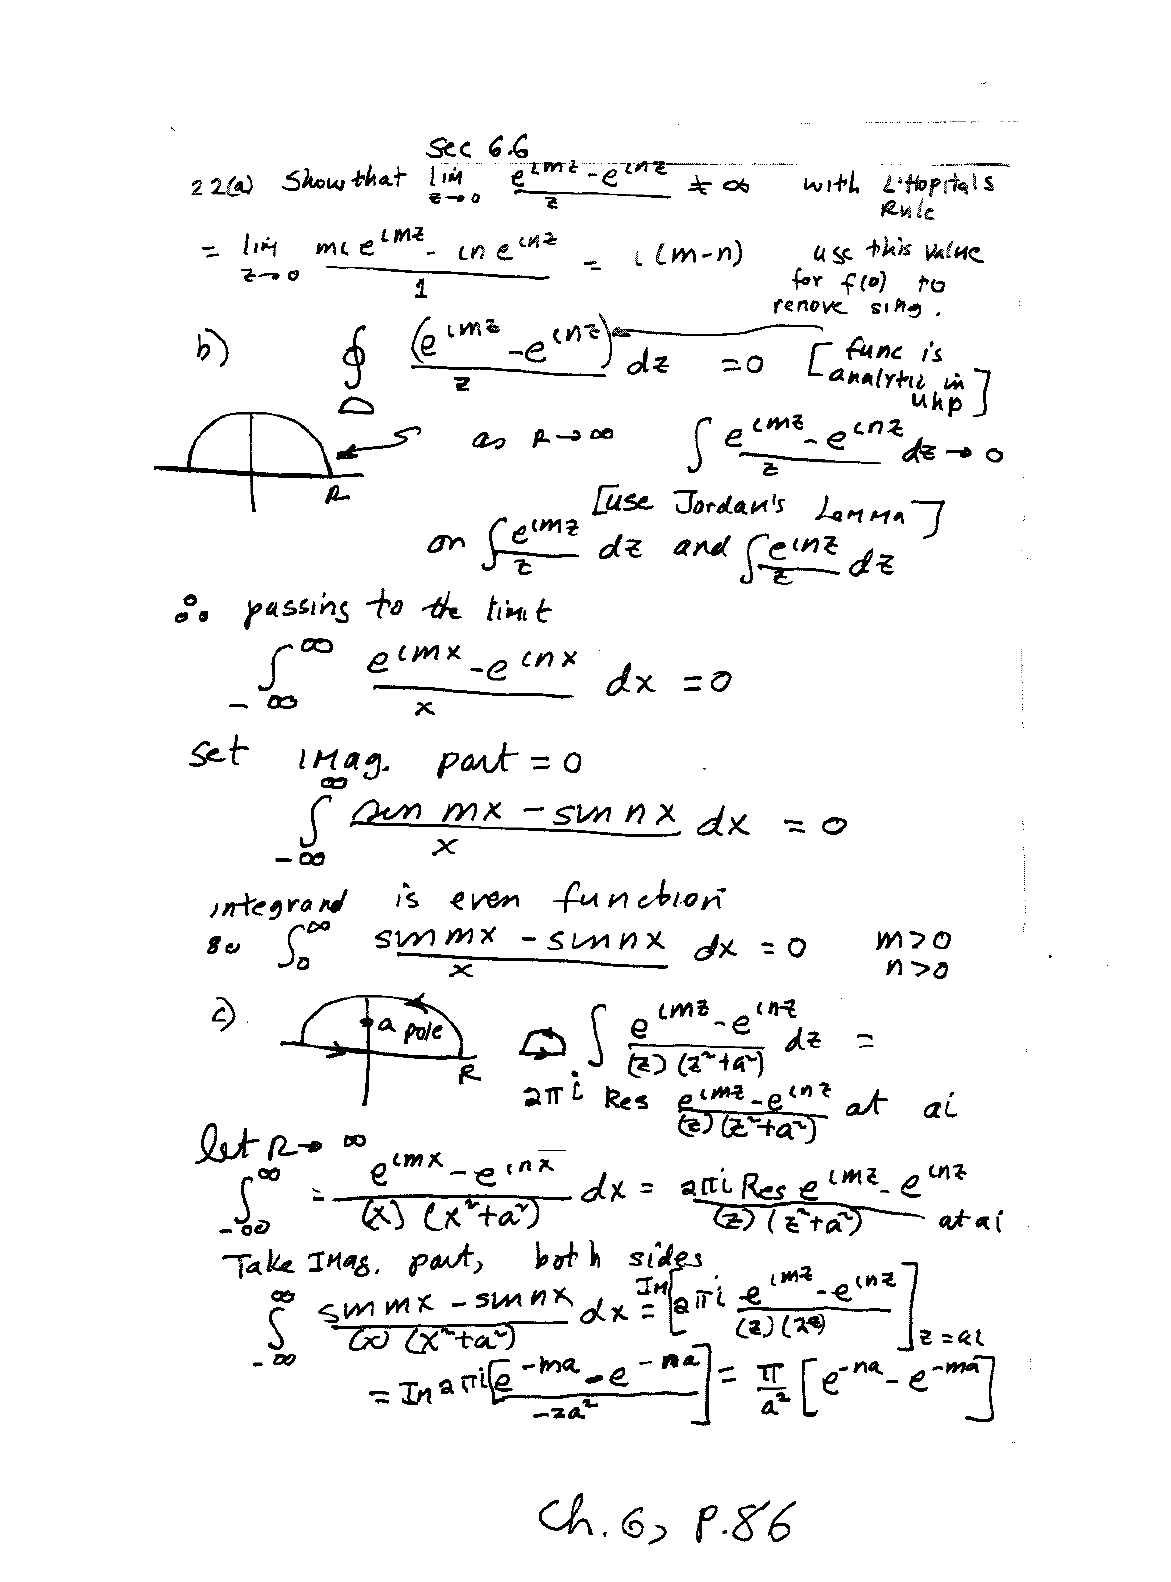 Sec 6.6
22(a) Show that lim z→0 (e^{imz} - e^{inz})/z ≠ ∞ with L'Hopital's Rule
= lim z→0 (mi e^{imz} - in e^{inz})/1 = i(m-n) use this value for f(0) to remove sing.
b) ∮ (e^{imz} - e^{inz})/z dz = 0 [func is analytic in uhp]
R as R→∞ ∫ (e^{imz} - e^{inz})/z dz → 0
[use Jordan's Lemma]
on ∫ e^{imz}/z dz and ∫ e^{inz}/z dz
∴ passing to the limit
∫_{-∞}^{∞} (e^{imx} - e^{inx})/x dx = 0
set imag. part = 0
∫_{-∞}^{∞} (sin mx - sin nx)/x dx = 0
integrand is even function
so ∫_0^∞ (sin mx - sin nx)/x dx = 0 m>0 n>0
c) a pole R ∫ (e^{imz} - e^{inz})/((z)(z²+a²)) dz =
2πi Res (e^{imz} - e^{inz})/((z)(z²+a²)) at ai
let R→∞
∫_{-∞}^{∞} = (e^{imx} - e^{inx})/((x)(x²+a²)) dx = 2πi Res (e^{imz} - e^{inz})/((z)(z²+a²)) at ai
Take Imag. part, both sides
∫_{-∞}^{∞} (sin mx - sin nx)/((x)(x²+a²)) dx = Im[2πi (e^{imz} - e^{inz})/((z)(2z))]_{z=ai}
= Im 2πi[(e^{-ma} - e^{-na})/(-2a²)] = π/a² [e^{-na} - e^{-ma}]
Ch. 6, p.86